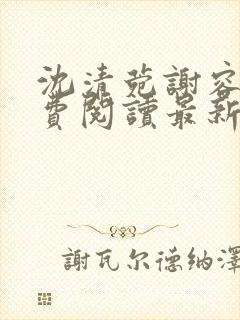 沈清苑謝容
費閱讀最新
謝瓦尔德纳澤